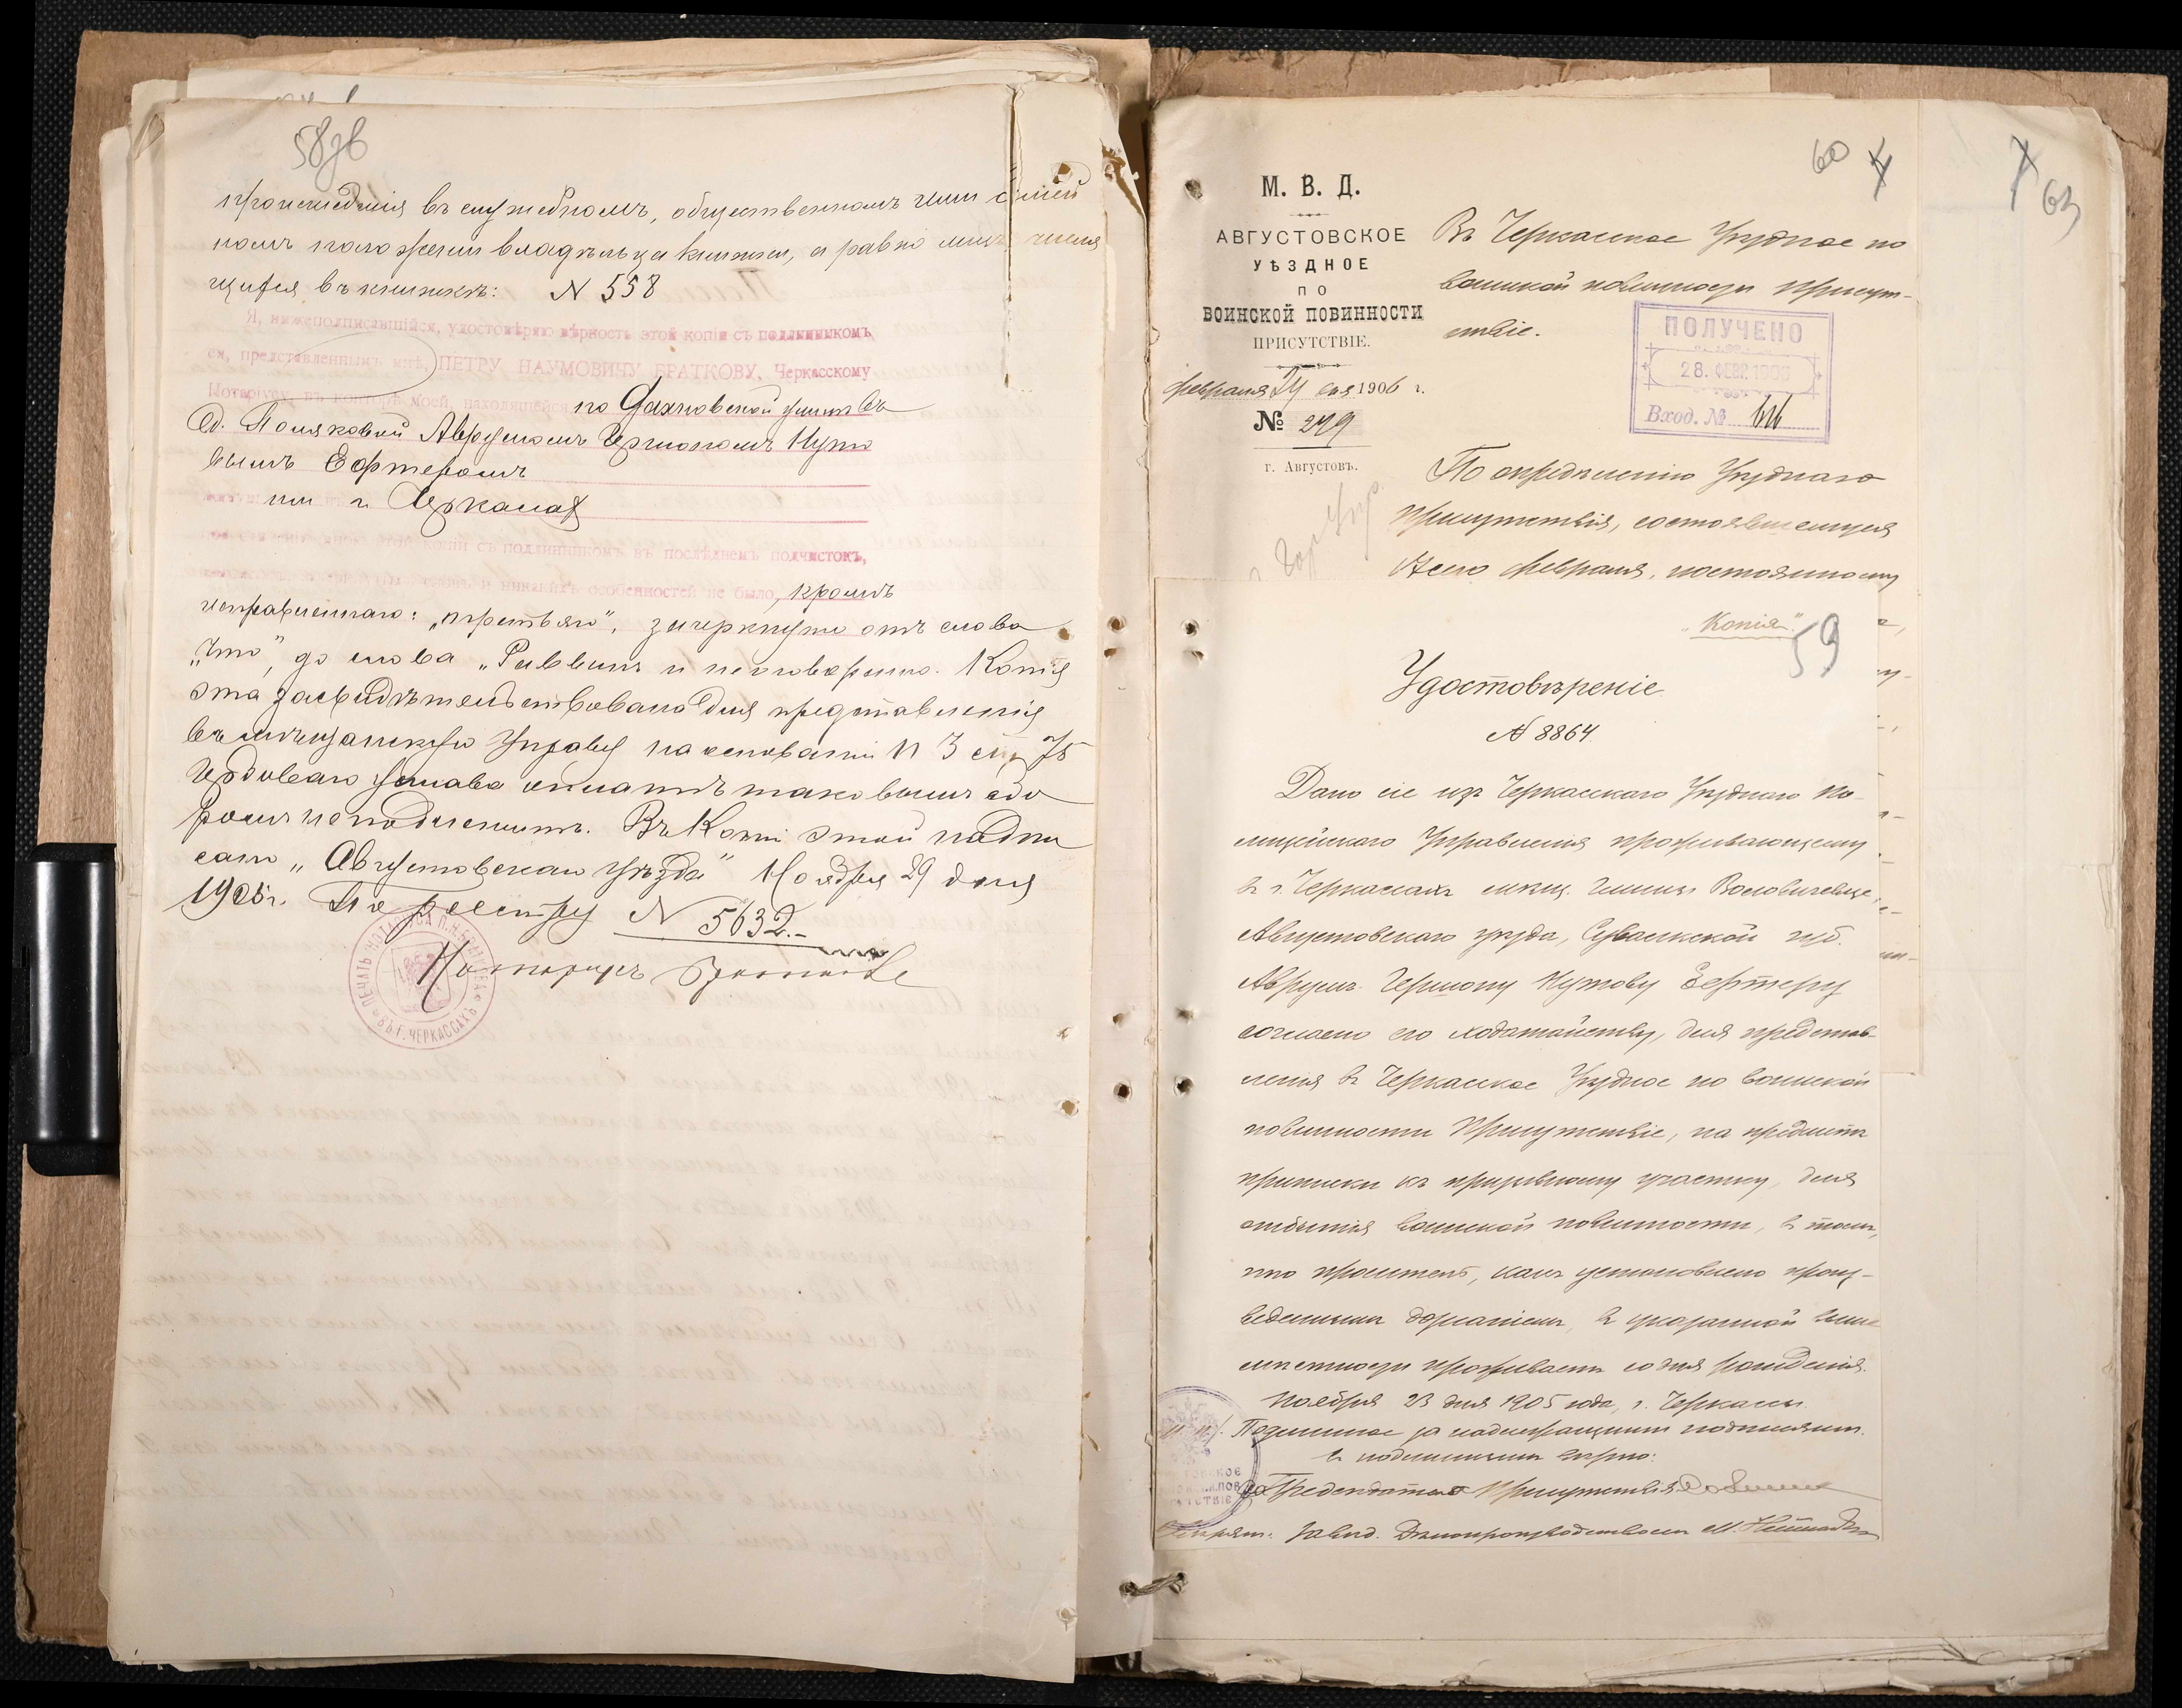 58 зв
происшедшія въ служебномъ, общественномъ или семей
номъ положеніи владѣльца книжки, а равно лицъ числя
щихся въ книжкѣ: N 558
Я, нижеподписавшійся, удостовѣряю вѣрность этой копіи съ подлинникомъ
ея, представленнымъ мнѣ, ПЕТРУ НАУМОВИЧУ БРАТКОВУ, Черкасскому
Нотаріусу, въ конторѣ моей, находящейся по Дахновской улицѣ въ
д. Поляковой Аврумомъ Гершономъ Нуто
вымъ Ефтеромъ
г. Черкассах
съ подлинникомъ въ послѣднемъ подчистокъ,
и никакихъ особенностей не было, кромѣ
исправленнаго: „третьяго", зачеркнуто отъ слова
„что", до слова „Раввинъ и неоговорено. Копія
эта засвидѣтельствована для представленія
въ мѣщанскую Управу на основаніи п 3 ст. 75
Гербоваго устава оплатѣ таковымъ сбо
ромъ неподлежитъ. Въ Копіи этой надпи
сано „Августовскаго уѣзда" Ноября 29 дня
1905 г. По реестру N 5632.-
Нотаріусъ Братковъ
ПЕЧАТЬ НОТАРІУСА П.Н. БРАТКОВА ВЪ Г. ЧЕРКАССАХЪ
60
63
М. В. Д.
АВГУСТОВСКОЕ
УѢЗДНОЕ
ПО
ВОИНСКОЙ ПОВИННОСТИ
ПРИСУТСТВІЕ.
февраля 24 дня 1906 г.
№ 299
г. Августовъ.
Въ Черкасское Уѣздное по
воинской повинности Присут-
ствіе.
ПОЛУЧЕНО
28. ФЕВР. 1906
Вход. №
По опредѣленію Уѣзднаго
Присутствія, состоявшемуся
сего февраля, постоянному
„Копія"
59
Удостовѣреніе
N 8864
Дано сіе изъ Черкасскаго Уѣзднаго По-
лицейскаго Управленія проживающему
въ г. Черкассахъ мѣщ. гмины Воловичевце,
Августовскаго уѣзда, Сувалкской губ.
Авруму Гершону Нутову Ефтеру
согласно его ходатайству, для представ-
ленія въ Черкасское Уѣздное по воинской
повинности Присутствіе, на предметъ
приписки къ призывному участку, для
отбытія воинской повинности, въ томъ,
что проситель, какъ установлено произ-
веденнымъ дознаніемъ, въ указанной выше
мѣстности проживаетъ со дня рожденія.
Ноября 23 дня 1905 года, г. Черкассы.
М. П. Подлинное за надлежащимъ подписомъ.
съ подлиннымъ вѣрно:
За Предсѣдателя Присутствія
Завѣд. Дѣлопроизводствомъ М.